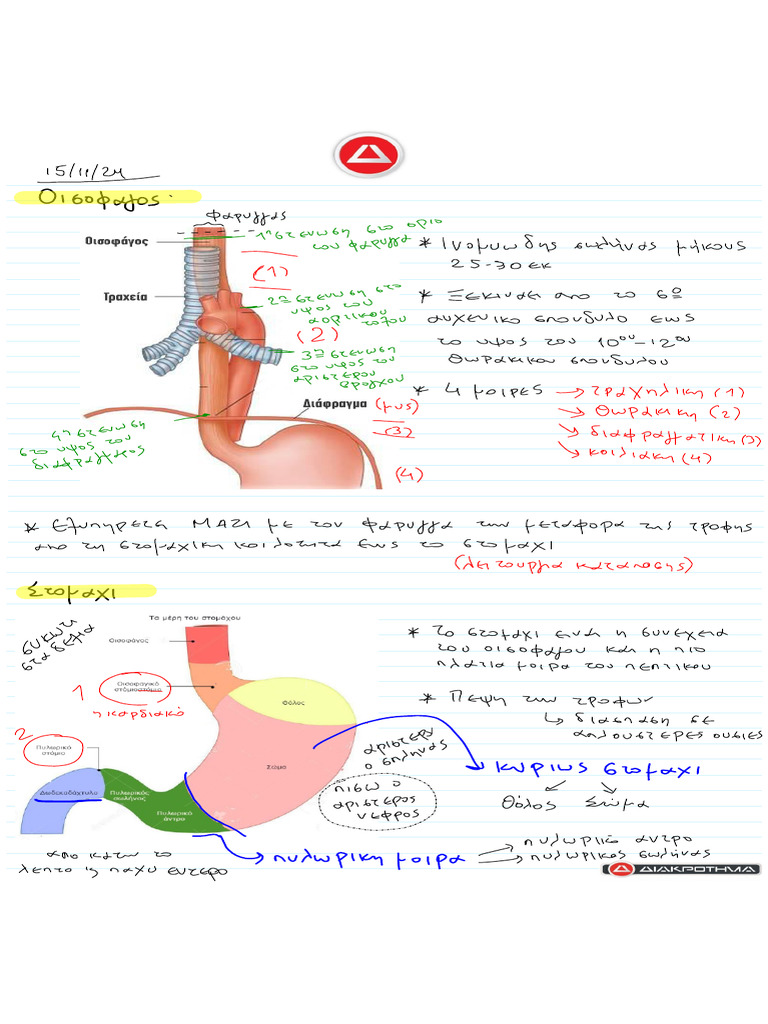 15/11/24
Οισοφαγος.
Φαρυγγας
1η στενωση στο οριο του φαρυγγα
Οισοφάγος
Τραχεία
(1)
2η στενωση στο υψος του αορτικου τοξου
(2)
3η στενωση στο υψος του αριστερου βρογχου
Διάφραγμα (μυς)
(3)
4η στενωση στο υψος του διαφραγματος
(4)
* Ινομυωδης σωληνας μηκους
25-30 εκ
* Ξεκιναει απο το 6ο
αυχενικο σπονδυλο εως
το υψος του 10ου-12ου
θωρακικου σπονδυλου
* 4 μοιρες → τραχηλικη (1)
→ θωρακικη (2)
→ διαφραγματικη (3)
→ κοιλιακη (4)
* Εξυπηρετει ΜΑΖΙ με τον φαρυγγα την μεταφορα της τροφης
απο τη στοματικη κοιλοτητα εως το στομαχι
(λειτουργια καταποσης)
Στομαχι
Τα μέρη του στομάχου
συκωτι
στα δεξια
Οισοφάγος
1
Οισοφαγικό
στόμιο στόμιο
η καρδιακό
Θόλος
Σώμα
2
Πυλωρικό
στόμιο
Δωδεκαδάχτυλο
Πυλωρικός
σωλήνας
Πυλωρικό
άντρο
αριστερα
ο σπληνας
πισω ο
αριστερος
νεφρος
απο κατω το
λεπτο η παχυ εντερο
* Το στομαχι ειναι η συνεχεια
του οισοφαγου και η πιο
πλατια μοιρα του πεπτικου
* Πεψη των τροφων
↳ διασπαση σε
απλουστερες ουσιες
κυριως στομαχι
Θολος Σωμα
πυλωρικη μοιρα
πυλωρικο αντρο
πυλωρικος σωληνας
ΔΙΑΚΡΟΤΗΜΑ